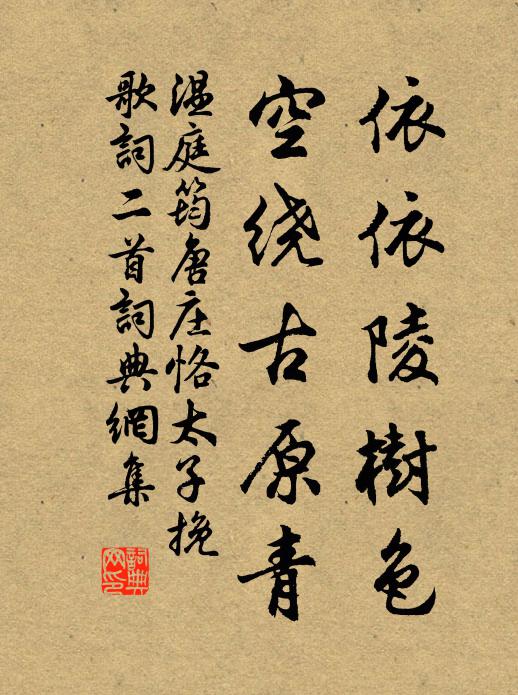 依依陵樹色
空绕古原青
温庭筠唐庄恪太子挽
歌詞二首詞典網集
詞典
网印